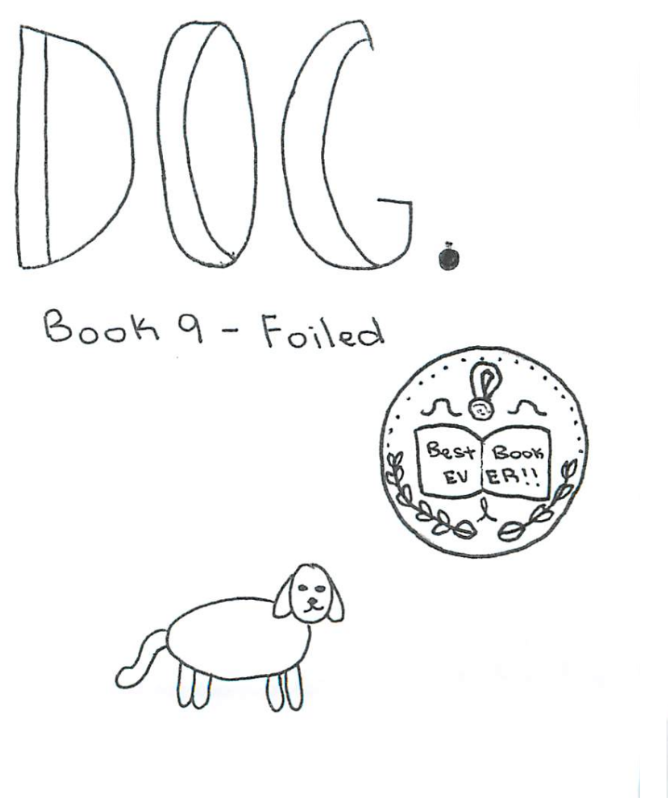 DOG.
Book 9 - Foiled
Best Book
EVER!!